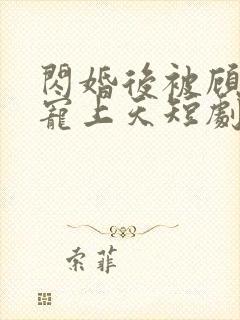 閃婚後被顧
寵上天短劇
索菲